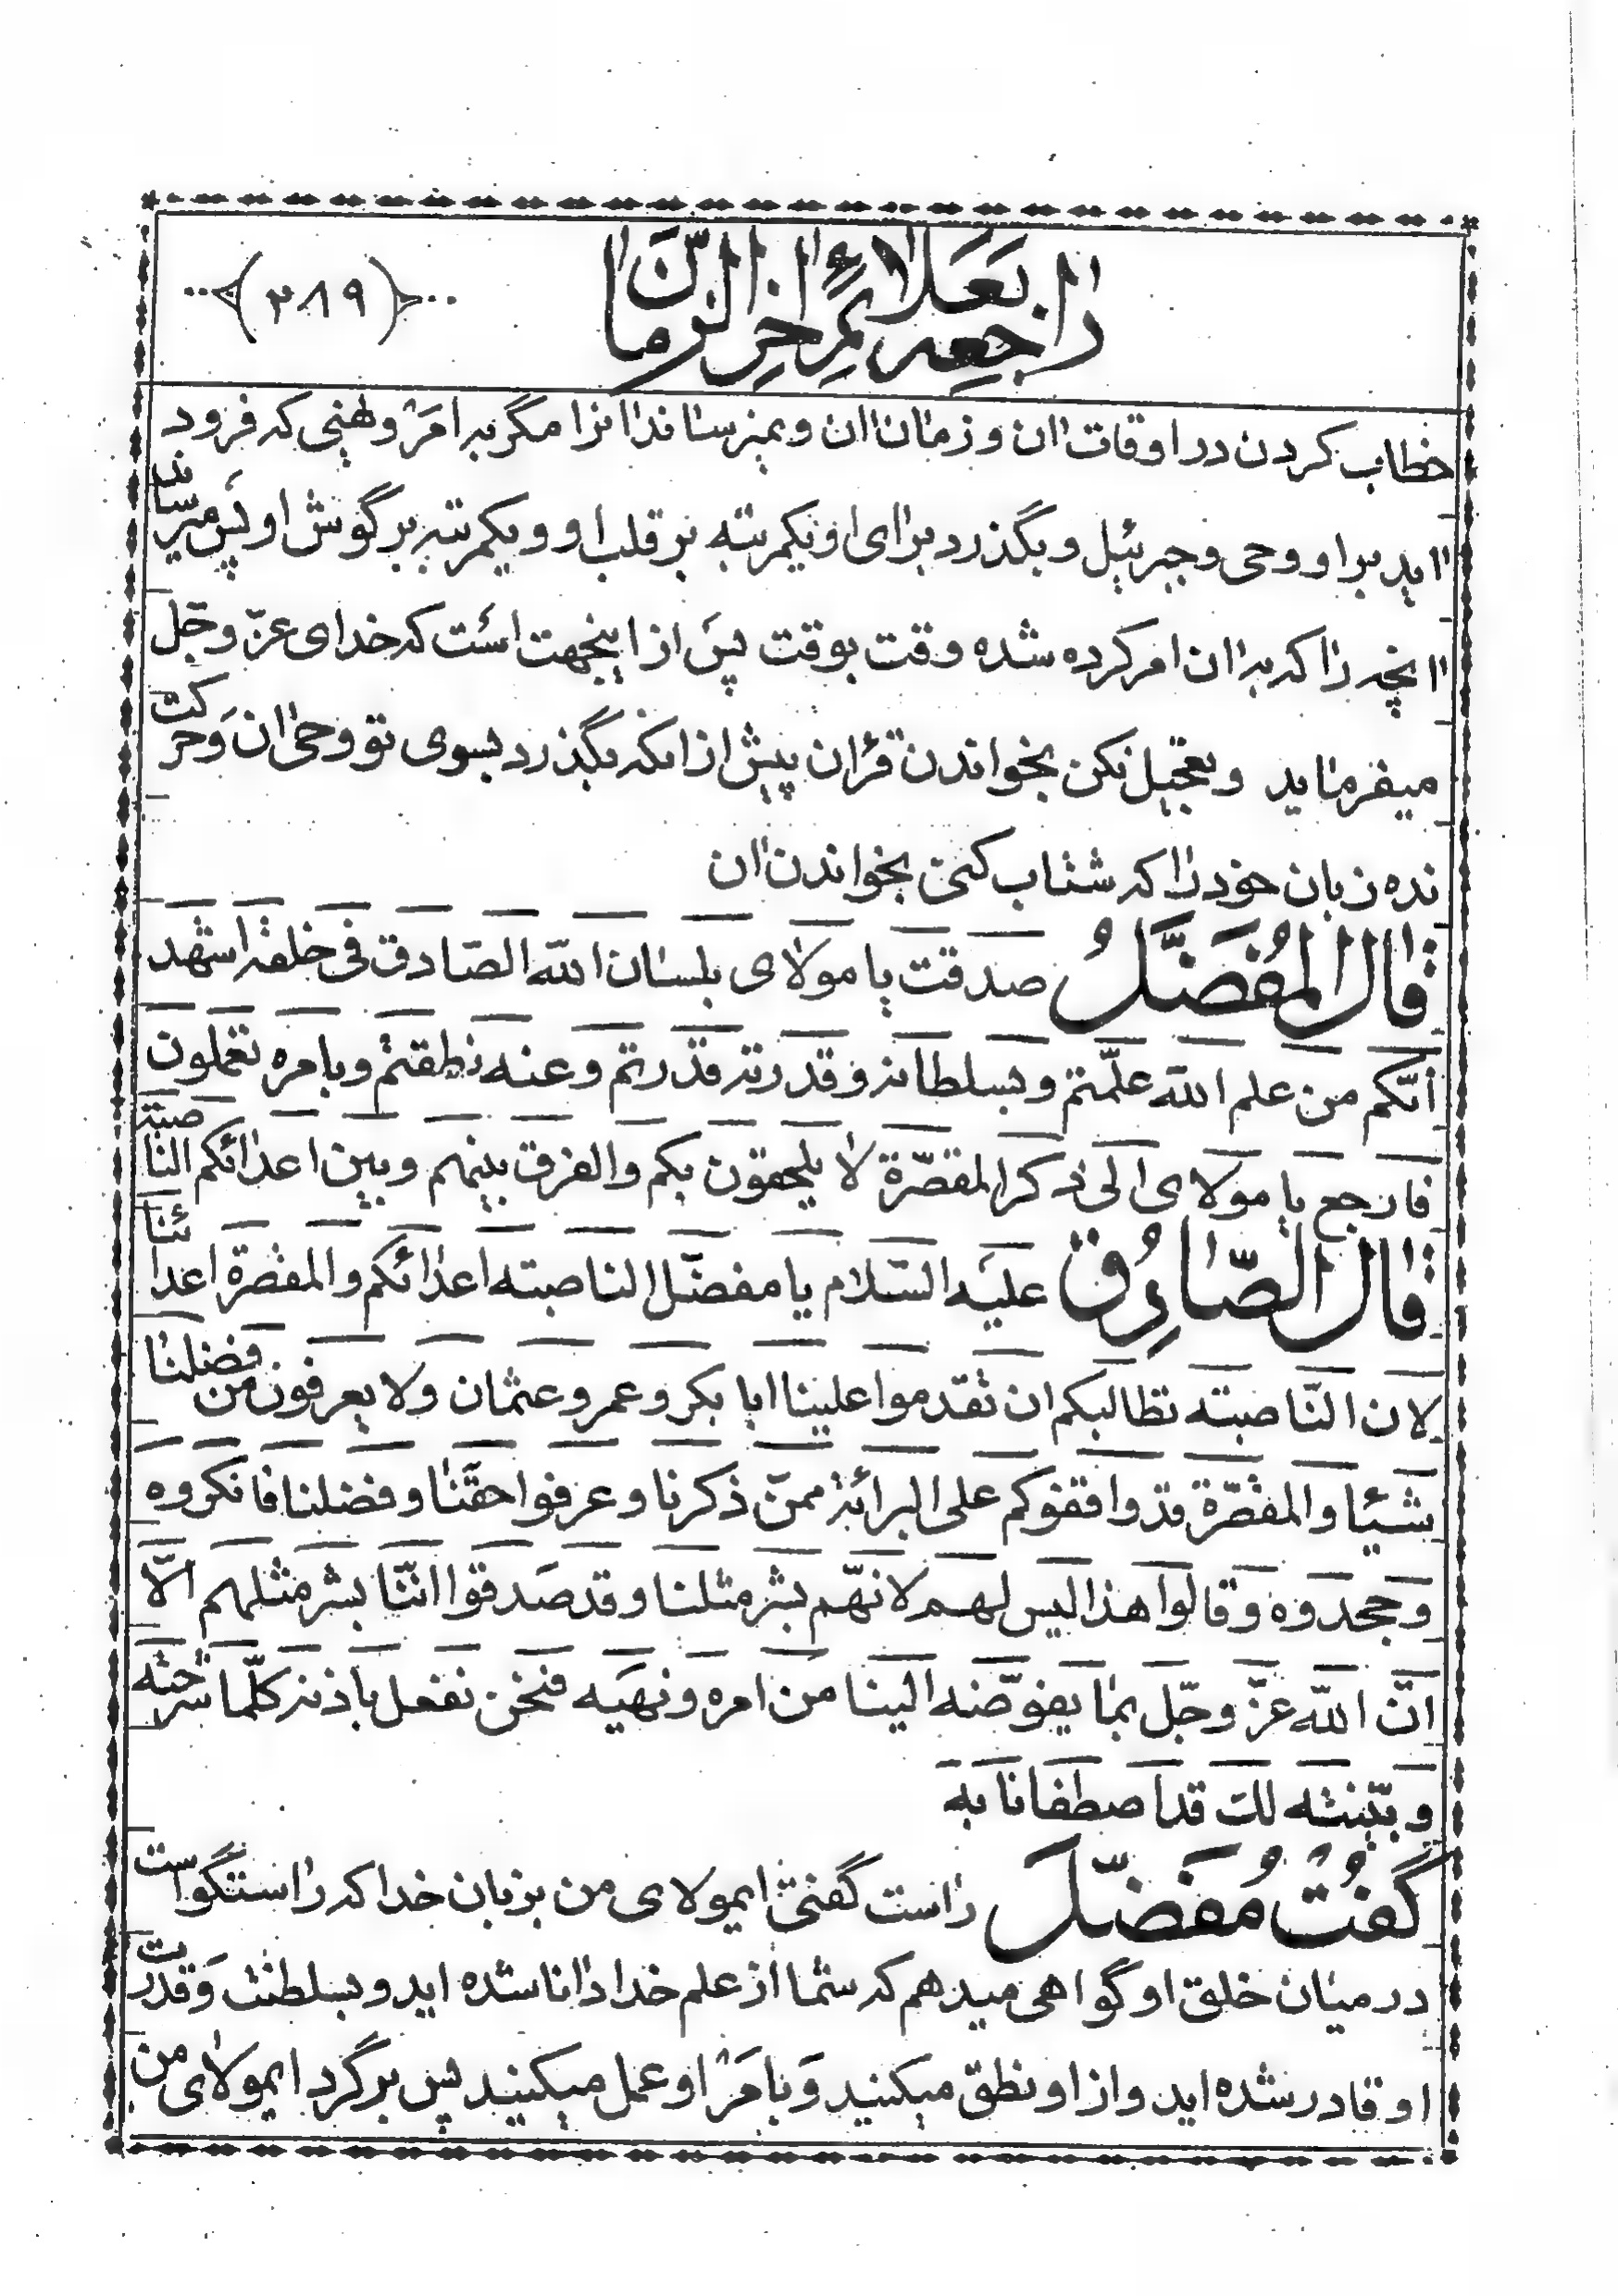 راجعه بعلائم اخر الزمان
﴿۲۸۹﴾
خطاب کردن در اوقات ان و زمان ان و نمیرساند انرا مگر به امر و نهیی که فرود
اید بر او وحی و جبرئیل و بگذرد برای او یکمرتبه بر قلب او و یکمرتبه بر گوش او پس میرساند
انچه را که به ان امر کرده شده وقت بوقت پس از اینجهت است که خدای عزّ و جّل
میفرماید و تعجیل نکن بخواندن قران پیش از انکه بگذرد بسوی تو وحی ان و حرکت
نده زبان خود را که شتاب کنی بخواندن ان
قال المفضّل صدقت یا مولای بلسان الله الصّادق فی خلقه اشهد
انّکم من علم الله علّمتم و بسلطانه و قدرته قدرتم و عنه نطقتم و بامره تعملون
فارجع یا مولای الی ذکر المقصّرة لا یلحقون بکم و الفرق بینهم و بین اعدائکم الناصبة
قال الصّادق علیه السّلام یا مفضّل الناصبته اعدائکم و المقصرة اعدائنا
لان النّاصبته تطالبکم ان تقدموا علینا ابا بکر و عمر و عثمان و لا یعرفون من فضلنا
شیئا و المقصّرة قد وافقوکم علی البرائة ممّن ذکرنا و عرفوا حقّنا و فضلنا فانکروه
و جحدوه و قالوا هذا لیس لهم لانهّم بشر مثلنا و قد صدقوا انّنا بشر مثلهم الّا
انّ الله عزّ و جّل بما یفوّضه الینا من امره و نهیه فنحن نفعل باذنه کلّما شرحته
و بیّنته لک قد اصطفانا به
گفت مفضّل راست گفتی ایمولای من بزبان خدا که راستگو است
در میان خلق او گواهی میدهم که شما از علم خدا دانا شده اید و بسلطنت و قدرت
او قادر شده اید و از او نطق میکنید و بامر او عمل میکنید پس برگرد ایمولای من